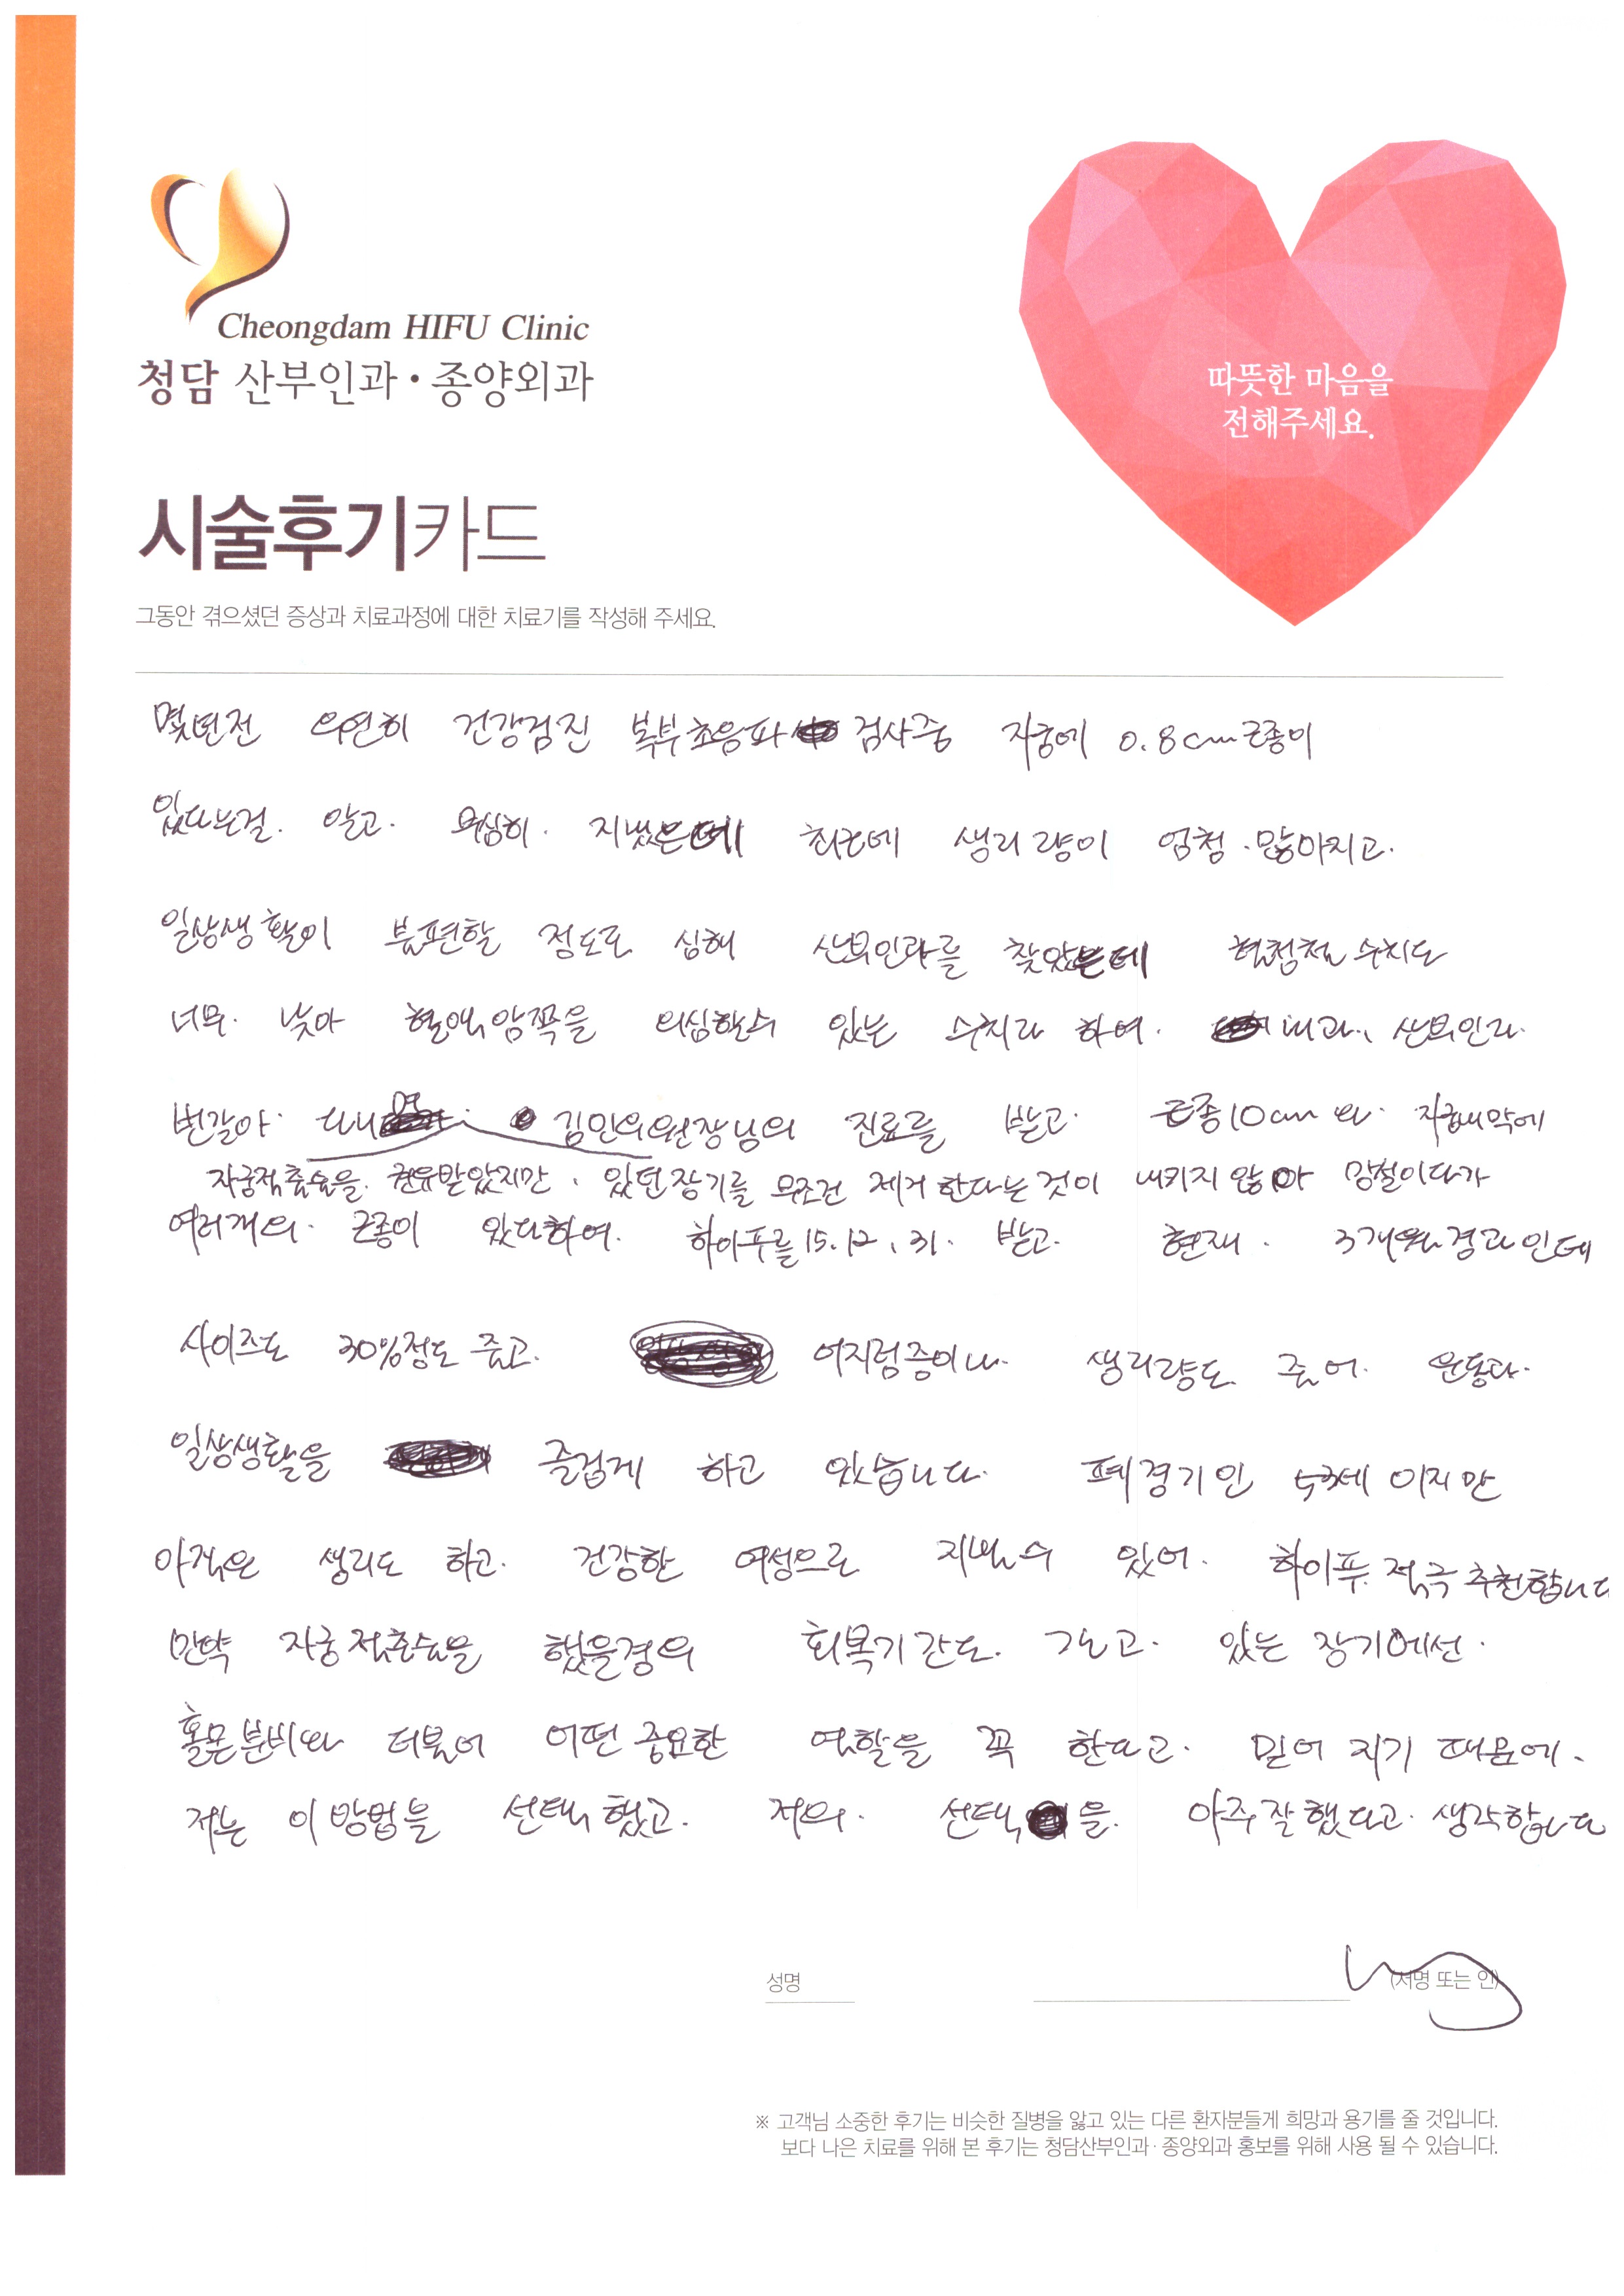 Cheongdam HIFU Clinic
청담 산부인과·종양외과
따뜻한 마음을
전해주세요.
시술후기카드
그동안 겪으셨던 증상과 치료과정에 대한 치료기를 작성해 주세요.
몇년전 우연히 건강검진 복부초음파 검사중 자궁에 0.8cm 근종이
있다는걸. 알고. 무심히. 지냈는데 최근에 생리량이 엄청.많아지고.
일상생활이 불편할 정도로 심해 산부인과를 찾았는데 헐청철 수치도
너무. 낮아 혈액암쪽을 의심할수 있는 수치라 하여. 내과, 산부인과.
번갈아 다니며 김민우원장님의 진료를 받고. 근종10cm와. 자궁내막에
자궁적출술을. 권유받았지만, 있던장기를 무조건 제거한다는것이 내키지 않아 망설이다가
여러개의. 근종이 있다하여. 하이푸를 15.12.31. 받고. 현재. 3개월경과인데
사이즈도 30%정도 줄고. 어지럼증이나. 생리량도 줄어. 운동과.
일상생활을 즐겁게 하고 있습니다. 폐경기인 53세이지만
아직은 생리도 하고. 건강한 여성으로 지낼수 있어. 하이푸.적극추천합니다
만약 자궁적출술을 했을경우 회복기간도. 그렇고. 있는 장기에선.
홀몬분비와 더불어 어떤중요한 역할을 꼭 한다고. 믿어지기 때문에.
저는 이방법을 선택했고. 저의. 선택을. 아주잘했다고.생각합니다
성명
(서명 또는 인)
※ 고객님 소중한 후기는 비슷한 질병을 앓고 있는 다른 환자분들게 희망과 용기를 줄 것입니다.
보다 나은 치료를 위해 본 후기는 청담산부인과·종양외과 홍보를 위해 사용 될 수 있습니다.